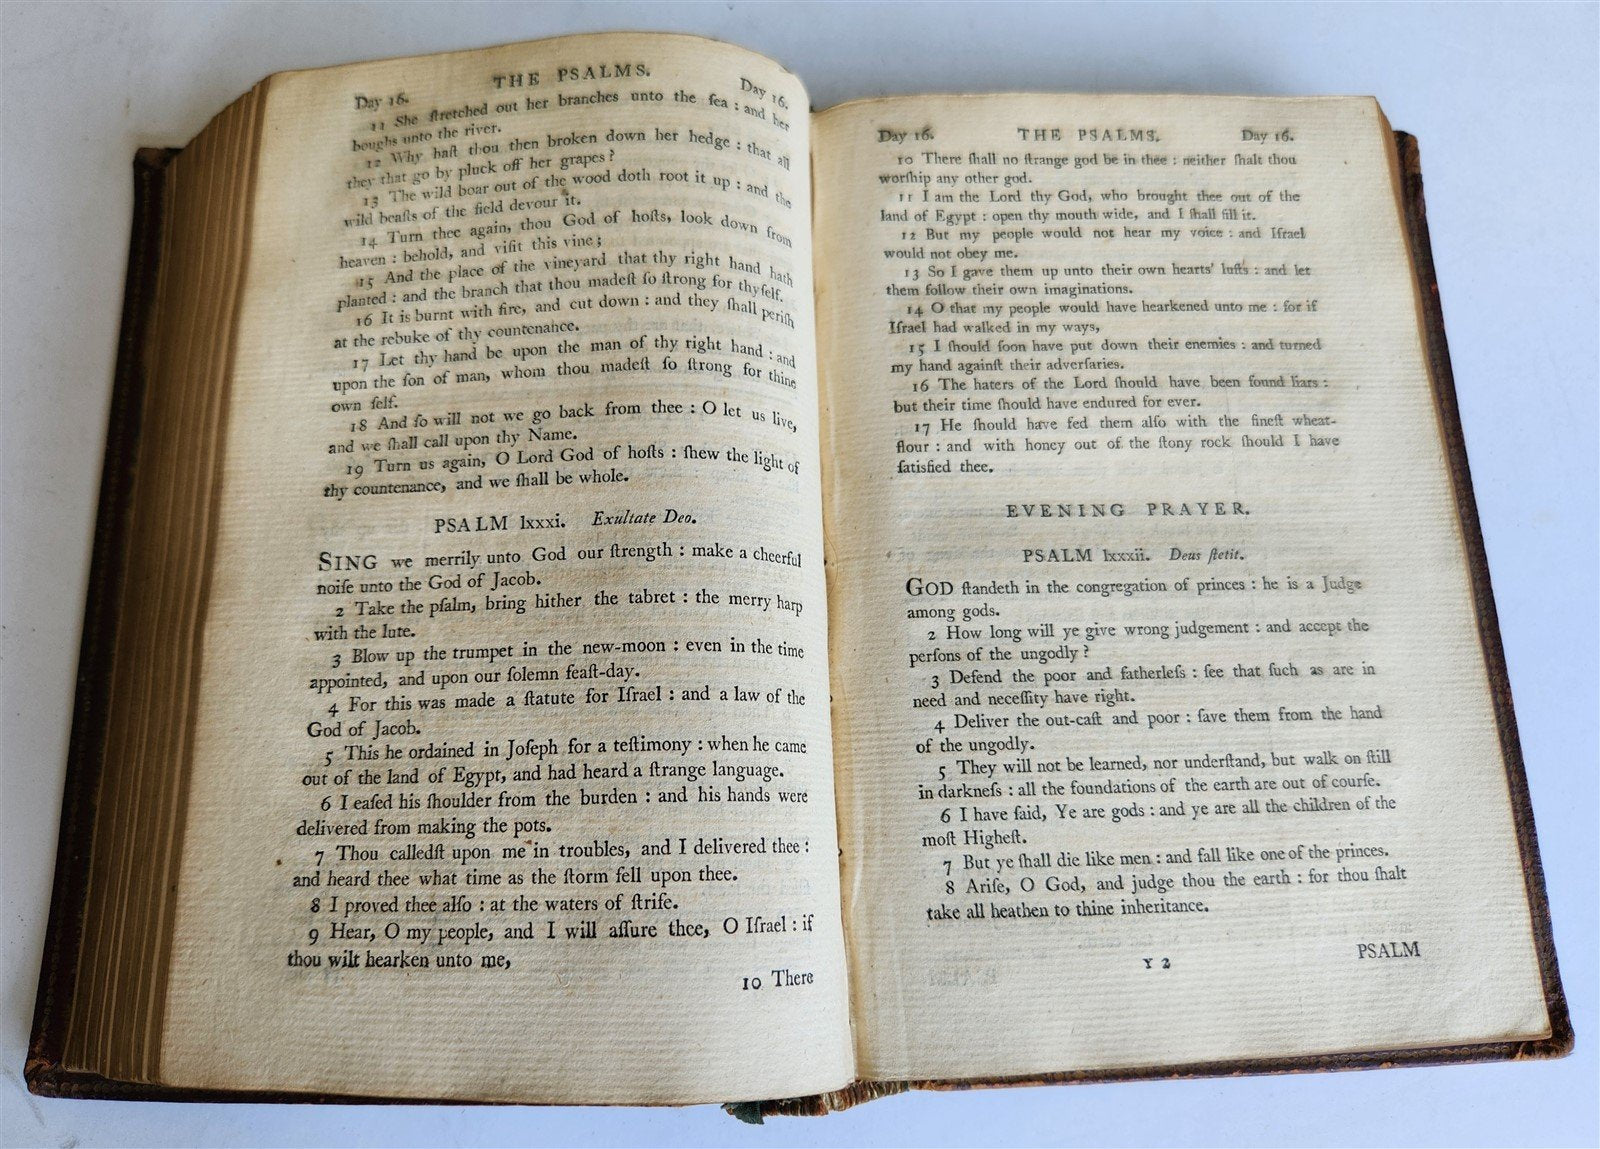 THE PSALMS.
Day 16. Day 16.
11 She ſtretched out her branches unto the ſea : and her
boughs unto the river.
12 Why haſt thou then broken down her hedge : that all
they that go by pluck off her grapes ?
13 The wild boar out of the wood doth root it up : and the
wild beaſts of the field devour it.
14 Turn thee again, thou God of hoſts, look down from
heaven : behold, and viſit this vine ;
15 And the place of the vineyard that thy right hand hath
planted : and the branch that thou madeſt ſo ſtrong for thyſelf.
16 It is burnt with fire, and cut down : and they ſhall periſh
at the rebuke of thy countenance.
17 Let thy hand be upon the man of thy right hand : and
upon the ſon of man, whom thou madeſt ſo ſtrong for thine
own ſelf.
18 And ſo will not we go back from thee : O let us live,
and we ſhall call upon thy Name.
19 Turn us again, O Lord God of hoſts : ſhew the light of
thy countenance, and we ſhall be whole.
PSALM lxxxi. Exultate Deo.
SING we merrily unto God our ſtrength : make a cheerful
noiſe unto the God of Jacob.
2 Take the pſalm, bring hither the tabret : the merry harp
with the lute.
3 Blow up the trumpet in the new-moon : even in the time
appointed, and upon our ſolemn feaſt-day.
4 For this was made a ſtatute for Iſrael : and a law of the
God of Jacob.
5 This he ordained in Joſeph for a teſtimony : when he came
out of the land of Egypt, and had heard a ſtrange language.
6 I eaſed his ſhoulder from the burden : and his hands were
delivered from making the pots.
7 Thou calledſt upon me in troubles, and I delivered thee :
and heard thee what time as the ſtorm fell upon thee.
8 I proved thee alſo : at the waters of ſtrife.
9 Hear, O my people, and I will aſſure thee, O Iſrael : if
thou wilt hearken unto me,
10 There
Day 16. THE PSALMS. Day 16.
10 There ſhall no ſtrange god be in thee : neither ſhalt thou
worſhip any other god.
11 I am the Lord thy God, who brought thee out of the
land of Egypt : open thy mouth wide, and I ſhall fill it.
12 But my people would not hear my voice : and Iſrael
would not obey me.
13 So I gave them up unto their own hearts' luſts : and let
them follow their own imaginations.
14 O that my people would have hearkened unto me : for if
Iſrael had walked in my ways,
15 I ſhould ſoon have put down their enemies : and turned
my hand againſt their adverſaries.
16 The haters of the Lord ſhould have been found liars :
but their time ſhould have endured for ever.
17 He ſhould have fed them alſo with the fineſt wheat-
flour : and with honey out of the ſtony rock ſhould I have
ſatisfied thee.
EVENING PRAYER.
PSALM lxxxii. Deus ſtetit.
GOD ſtandeth in the congregation of princes : he is a Judge
among gods.
2 How long will ye give wrong judgement : and accept the
perſons of the ungodly ?
3 Defend the poor and fatherleſs : ſee that ſuch as are in
need and neceſſity have right.
4 Deliver the out-caſt and poor : ſave them from the hand
of the ungodly.
5 They will not be learned, nor underſtand, but walk on ſtill
in darkneſs : all the foundations of the earth are out of courſe.
6 I have ſaid, Ye are gods : and ye are all the children of the
moſt Higheſt.
7 But ye ſhall die like men : and fall like one of the princes.
8 Ariſe, O God, and judge thou the earth : for thou ſhalt
take all heathen to thine inheritance.
Y 2 PSALM